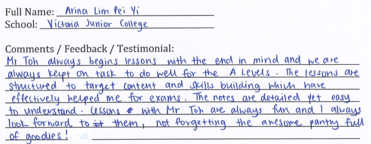 Full Name: Arina Lim Pei Yi
School: Victoria Junior College
Comments / Feedback / Testimonial:
Mr Toh always begins lessons with the end in mind and we are
always kept on task to do well for the A Levels. The lessons are
structured to target content and skills building which have
effectively helped me for exams. The notes are detailed yet easy
to understand. Lessons with Mr Toh are always fun and I always
look forward to them, not forgetting the awesome pantry full
of goodies!